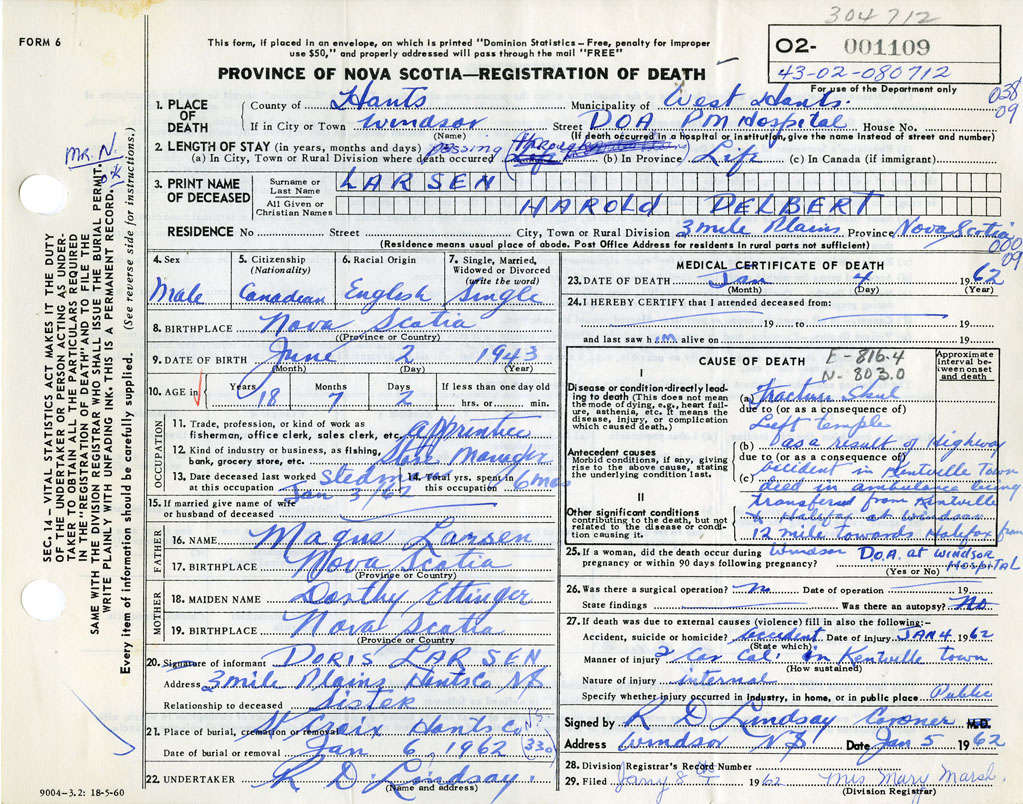 304712
FORM 6
This form, if placed in an envelope, on which is printed "Dominion Statistics—Free, penalty for improper
use $50," and properly addressed will pass through the mail "FREE"
O2- 001109
43-02-080712
PROVINCE OF NOVA SCOTIA—REGISTRATION OF DEATH
For use of the Department only
038
09
1. PLACE OF DEATH
County of Hants Municipality of West Hants.
If in City or Town Windsor Street D.O.A. P.M Hospital House No.
(Name) (If death occurred in a hospital or institution, give the name instead of street and number)
2. LENGTH OF STAY (in years, months and days)
(a) In City, Town or Rural Division where death occurred passing through (b) In Province Life (c) In Canada (if immigrant)
3. PRINT NAME OF DECEASED
Surname or Last Name LARSEN
All Given or Christian Names HAROLD DELBERT
RESIDENCE No Street City, Town or Rural Division 3 mile Plains Province Nova Scotia
(Residence means usual place of abode. Post Office Address for residents in rural parts not sufficient)
000
09
4. Sex Male
5. Citizenship (Nationality) Canadian
6. Racial Origin English
7. Single, Married, Widowed or Divorced (write the word) Single
8. BIRTHPLACE Nova Scotia
(Province or Country)
9. DATE OF BIRTH June 2 1943
(Month) (Day) (Year)
10. AGE in Years 18 Months 7 Days 2 If less than one day old hrs. or min.
OCCUPATION
11. Trade, profession, or kind of work as
fisherman, office clerk, sales clerk, etc. apprentice
12. Kind of industry or business, as fishing,
bank, grocery store, etc. Store Manager
13. Date deceased last worked Stedman 14. Total yrs. spent in
at this occupation Jan 3/62 this occupation 6 mos
15. If married give name of wife
or husband of deceased
FATHER
16. NAME Magus Larsen
17. BIRTHPLACE Nova Scotia
(Province or Country)
MOTHER
18. MAIDEN NAME Dorthy Ettinger
19. BIRTHPLACE Nova Scotia
(Province or Country)
20. Signature of informant DORIS LARSEN
Address 3 mile Plains Hants Co NS
Relationship to deceased Sister
21. Place of burial, cremation or removal St Croix Hants Co N.S.
Date of burial or removal Jan 6, 1962 (330)
22. UNDERTAKER R D Lindsay.
(Name and address)
MEDICAL CERTIFICATE OF DEATH
23. DATE OF DEATH Jan 4 1962
(Month) (Day) (Year)
24. I HEREBY CERTIFY that I attended deceased from:
19 to 19
and last saw h em alive on 19
CAUSE OF DEATH E-816.4
N-803.0
Approximate interval between onset and death
I
Disease or condition directly leading to death (This does not mean the mode of dying, e.g., heart failure, asthenia, etc. It means the disease, injury, or complication which caused death.)
(a) Fracture Skul
due to (or as a consequence of)
Left temple
Antecedent causes
Morbid conditions, if any, giving rise to the above cause, stating the underlying condition last.
(b) as a result of Highway
due to (or as a consequence of)
(c) accident in Kentville Town
died in ambulance being
transfered from Kentville
II
Other significant conditions
contributing to the death, but not related to the disease or condition causing it.
to Halifax at Windsor
12 mile towards Halifax from
Windsor D.O.A. at WINDSOR
HOSPITAL
25. If a woman, did the death occur during
pregnancy or within 90 days following pregnancy?
(Yes or No)
26. Was there a surgical operation? No Date of operation 19
State findings Was there an autopsy? No
27. If death was due to external causes (violence) fill in also the following:—
Accident, suicide or homicide? Accident Date of injury JAN 4 1962
(State which)
Manner of injury 2 Car Col. in Kentville town
(How sustained)
Nature of injury internal
Specify whether injury occurred in industry, in home, or in public place Public
Signed by R D Lindsay Coroner M.D.
Address Windsor NS Date Jan 5 1962
28. Division Registrar's Record Number
29. Filed Jany 8th 1962 Mrs Mary Marsh
(Division Registrar)
Mr. N.
ok
SEC. 14 - VITAL STATISTICS ACT MAKES IT THE DUTY
OF THE UNDERTAKER OR PERSON ACTING AS UNDER-
TAKER TO OBTAIN ALL THE PARTICULARS REQUIRED
IN THE "REGISTRATION OF DEATH" AND TO FILE THE
SAME WITH THE DIVISION REGISTRAR WHO SHALL ISSUE THE BURIAL PERMIT.
WRITE PLAINLY WITH UNFADING INK. THIS IS A PERMANENT RECORD.
Every item of information should be carefully supplied. (See reverse side for instructions.)
9004-3.2: 18-5-60